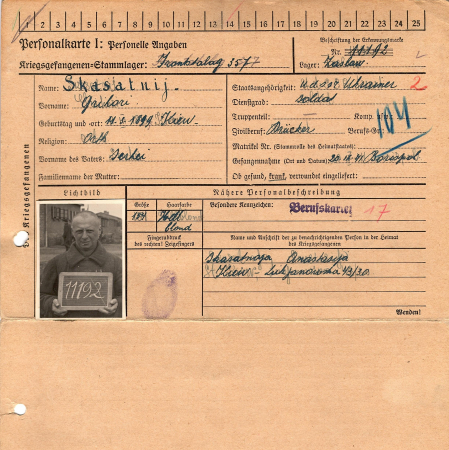 1 2 3 4 5 6 7 8 9 10 11 12 13 14 15 16 17 18 19 20 21 22 23 24 25
Personalkarte I: Personelle Angaben
Kriegsgefangenen-Stammlager: Frontstalag 3577
Beschriftung der Erkennungsmarke
Nr. 11192
Lager: Zaslaw
Des Kriegsgefangenen
Name: Skasatnij
Vorname: Gritori
Geburtstag und -ort: 1899 Kiew
Religion: Orth
Vorname des Vaters: Serhei
Familienname der Mutter:
Staatsangehörigkeit: U.d.S.S.R. Ukrainer 2
Dienstgrad: Soldat
Truppenteil: Komp. usw.:
Zivilberuf: Drücker Berufs-Gr.: 104
Matrikel Nr. (Stammrolle des Heimatstaates):
Gefangennahme (Ort und Datum): 20.IX.41 Borispol
Ob gesund, krank, verwundet eingeliefert:
Lichtbild
11192
Nähere Personalbeschreibung
Größe Haarfarbe
184 blond
Besondere Kennzeichen:
Berufskartei 17
Fingerabdruck
des rechten! Zeigefingers
Name und Anschrift der zu benachrichtigenden Person in der Heimat
des Kriegsgefangenen
Skasatnaja Anastasija
Kiew Lukjanowska 43/30.